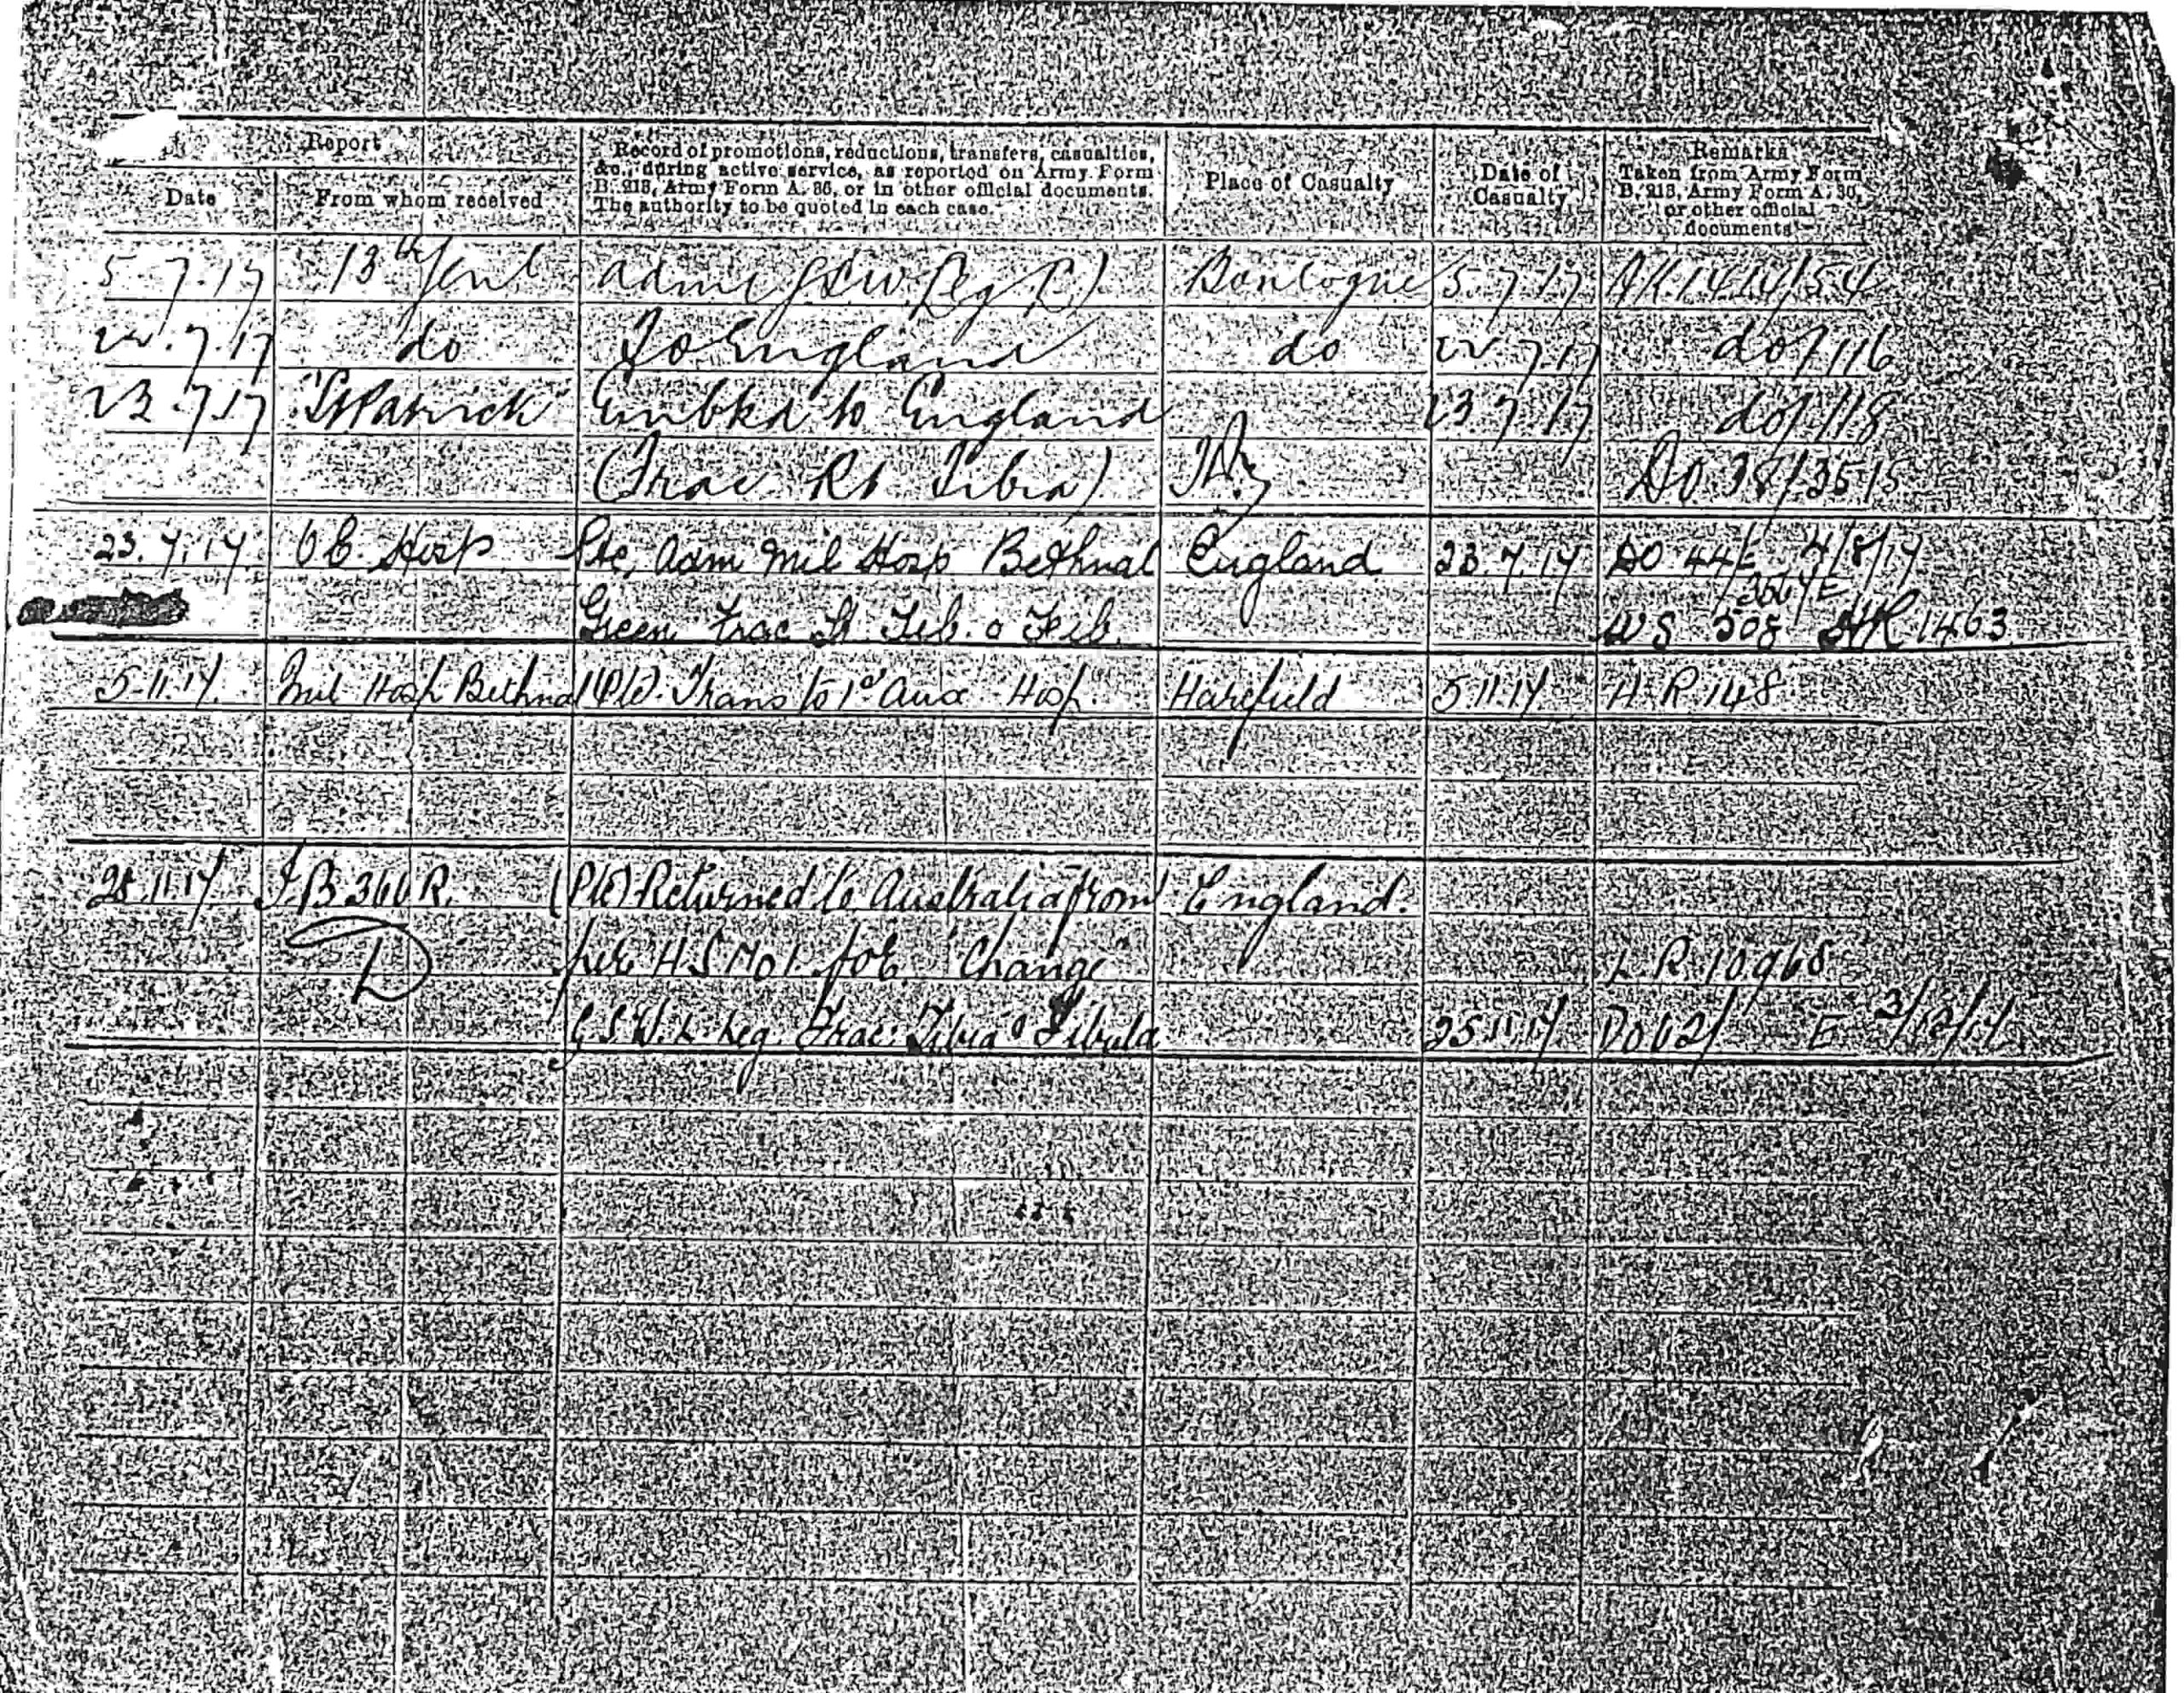 Report
Date
From whom received
Record of promotions, reductions, transfers, casualties,
&c., during active service, as reported on Army Form
B. 213, Army Form A. 36, or in other official documents.
The authority to be quoted in each case.
Place of Casualty
Date of
Casualty
Remarks
Taken from Army Form
B. 213, Army Form A. 36,
or other official
documents
5.7.17 13th Genl adm Boulogne 5.7.17
22.7.17 do To England do 22.7.17 do/116
23.7.17 "St Patrick" Embkd to England 23.7.17 do/118
(Frac Rt Tibia) DO 38/3515
23.7.17 O C Hosp Pte. Adm Mil Hosp Bethnal England 23.7.17 DO 44/ 4/8/17
Green Frac Tib. o Fib. WS 508 HR 1463
5.11.17. Mil Hosp Bethnal (Pte). Trans to 1st Aux Hosp. Harefield 5.11.17 H.R 148
28.11.17 (Pte) Returned to Australia from England.
per H.S No 1. for "Change" L.R. 10968
G.S.W. L. Leg. Frac: Tibia o Fibula 25.11.17 DO 62/ E 3/12/17